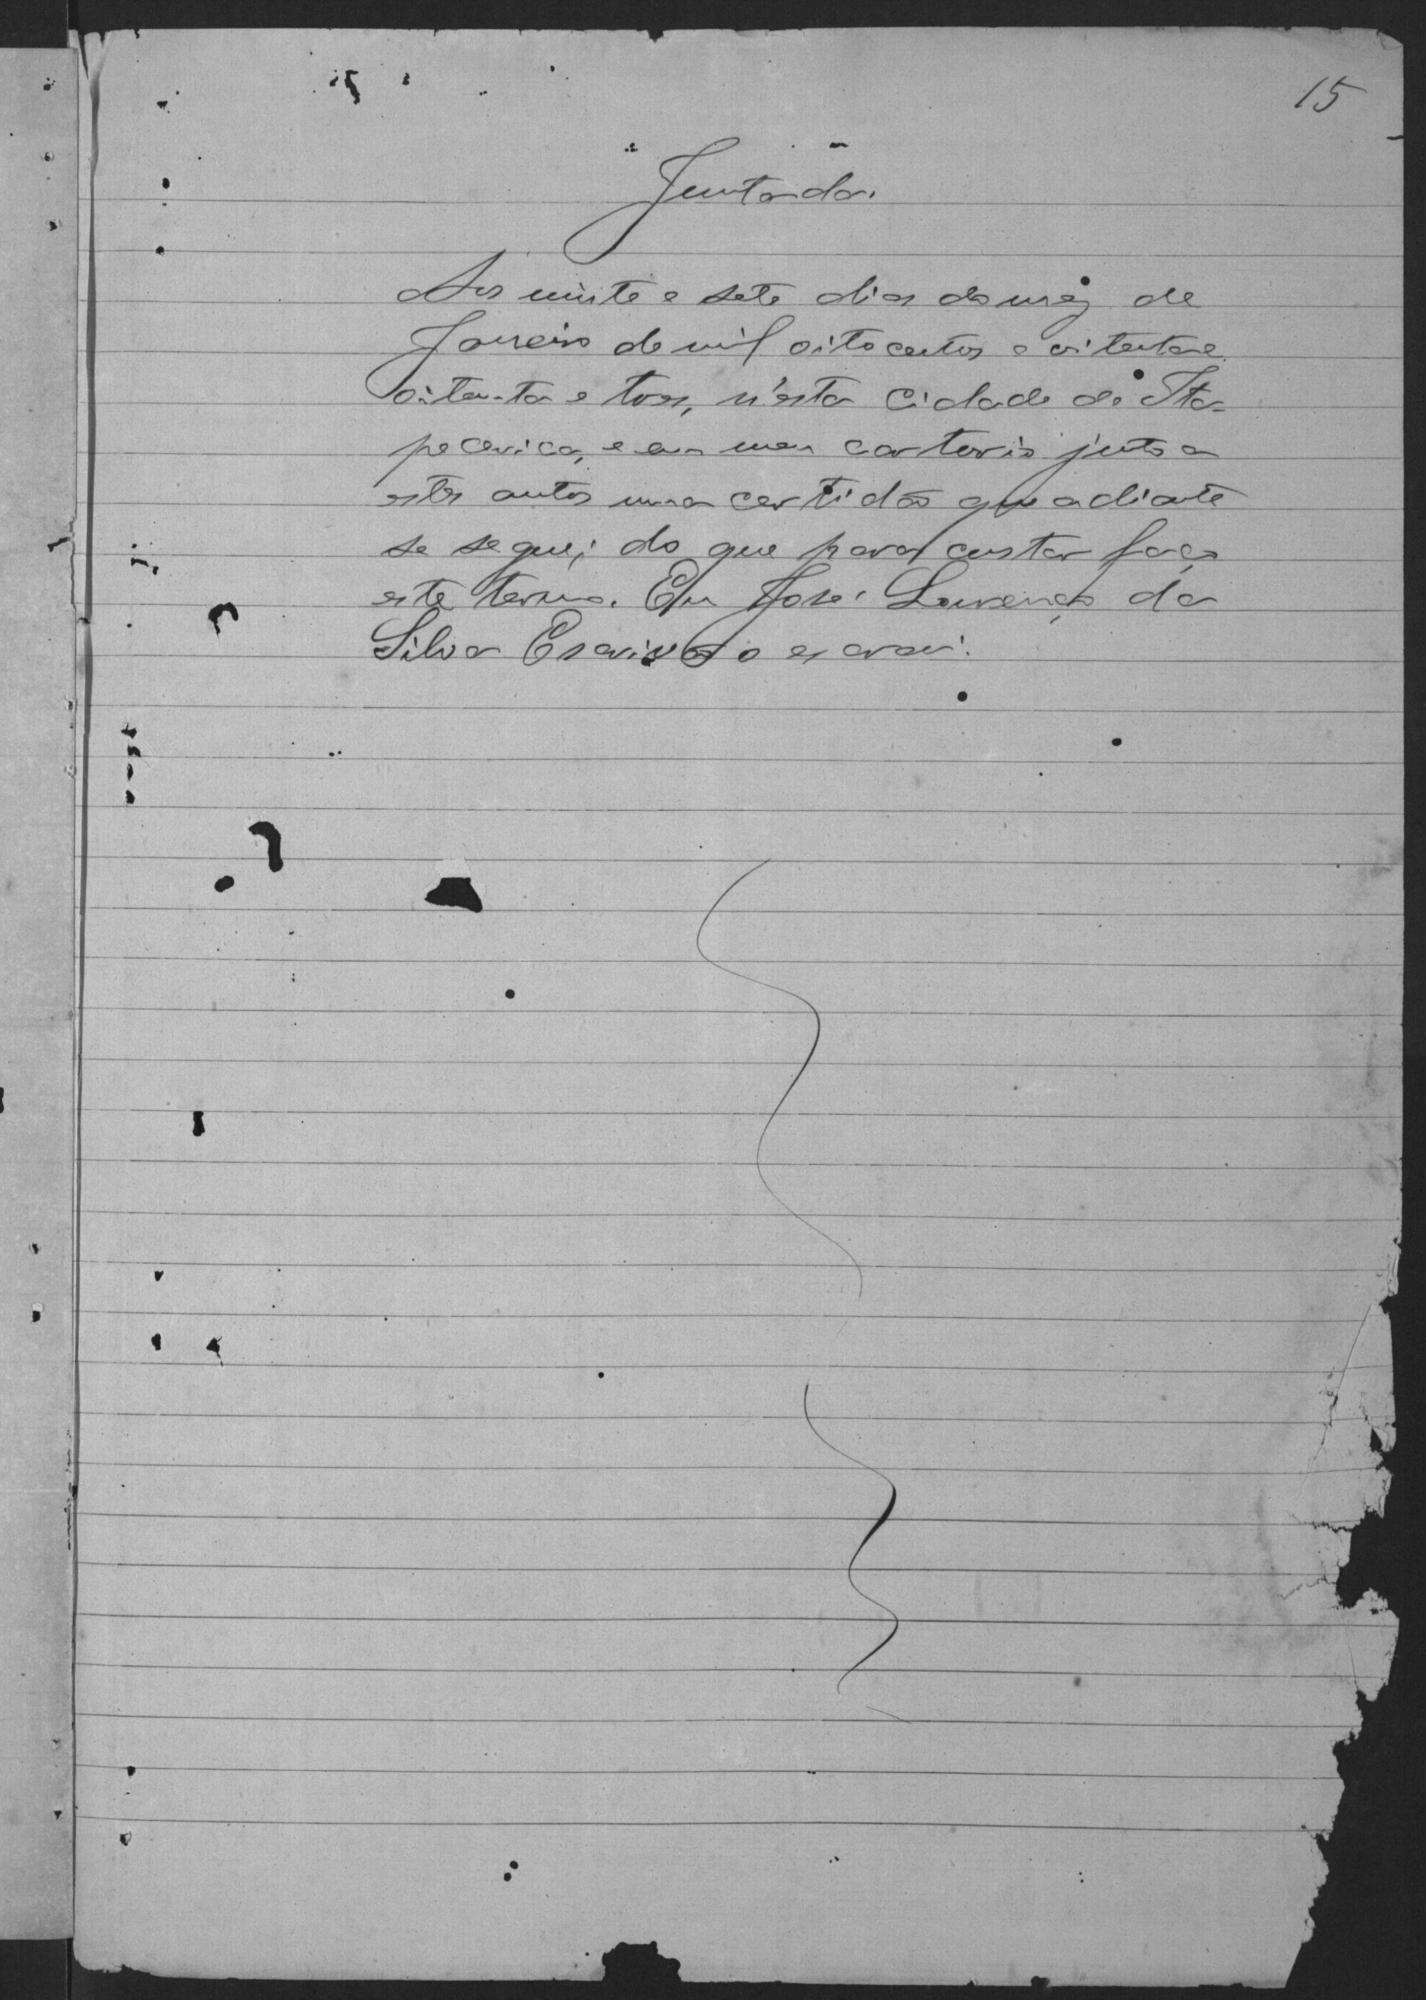 15
Juntada.
Aos vinte e sete dias do mez de
Janeiro de mil oitocentos e oitenta e
oitenta e tres, n'esta cidade de Ita-
pecerica, e em meu cartorio junto a
estes autos uma certidão que adiante
se segue; do que para custar faço
este termo. Eu José Lourenço da
Silva Escrivão o escrevi.